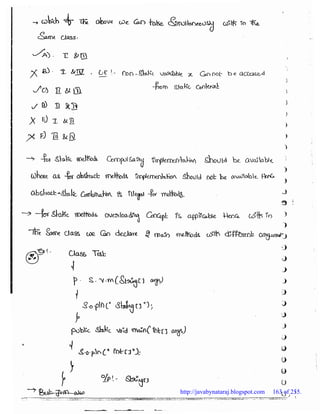 → which of the above we can take Simultaneously with in the
Same class.
✓A) . I & III
X B) . I & IV . CE :- non-static variable x Can not be accessed
from static Context
✓C) II & III
✓ D) II & IV
X E) I & II
X F) III & IV
→ for static methods Compulsary implementation should be available
where as for abstract methods implementation should not be available. Hence
abstract-static Combination is illegal for methods.
→ for static methods overloading Concept is applicable Hence with in
the Same class we can declare 2 main methods with different arguments
Eg:- class Test
{
P. S. v. m (String[] args)
{
S.o.pln(" String[] ");
}
public static void main(int[] args)
{
S.o.pln(" int[] ");
}
}
O/p :- String[]
→ But Jvm
http://javabynataraj.blogspot.com 163 of 255.